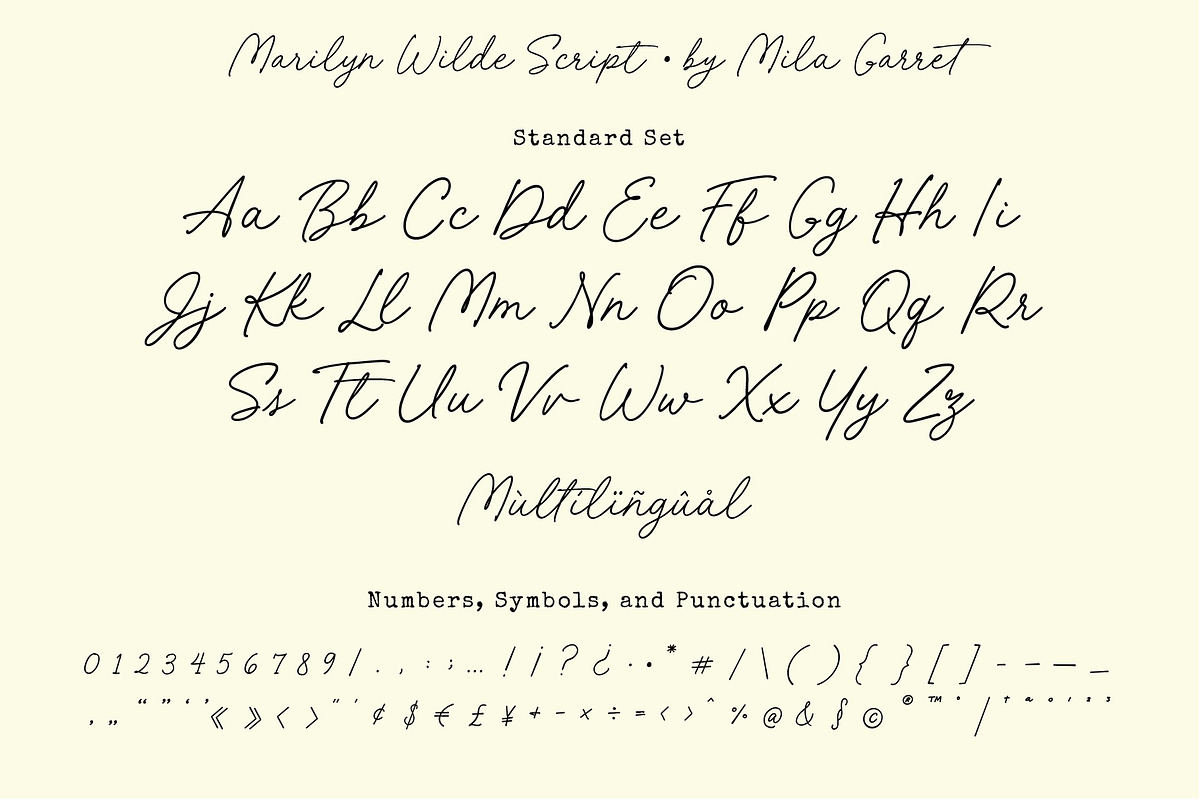 Marilyn Wilde Script • by Mila Garret
Standard Set
Aa Bb Cc Dd Ee Ff Gg Hh Ii
Jj Kk Ll Mm Nn Oo Pp Qq Rr
Ss Tt Uu Vv Ww Xx Yy Zz
Mùltílïñgûål
Numbers, Symbols, and Punctuation
0 1 2 3 4 5 6 7 8 9 / . , : ; … ! ¡ ? ¿ · • * # / \ ( ) { } [ ] - – — _
‚ „ “ ” ‘ ’ « » ‹ › " ' ¢ $ € £ ¥ + − × ÷ = < > ^ % @ & § © ® ™ ° | † ª º ¹ ² ³